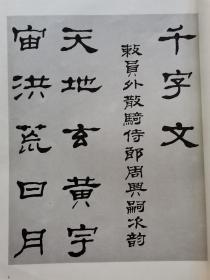 千字文
敕員外散騎侍郎周興嗣次韵
天地玄黄宇
宙洪荒日月